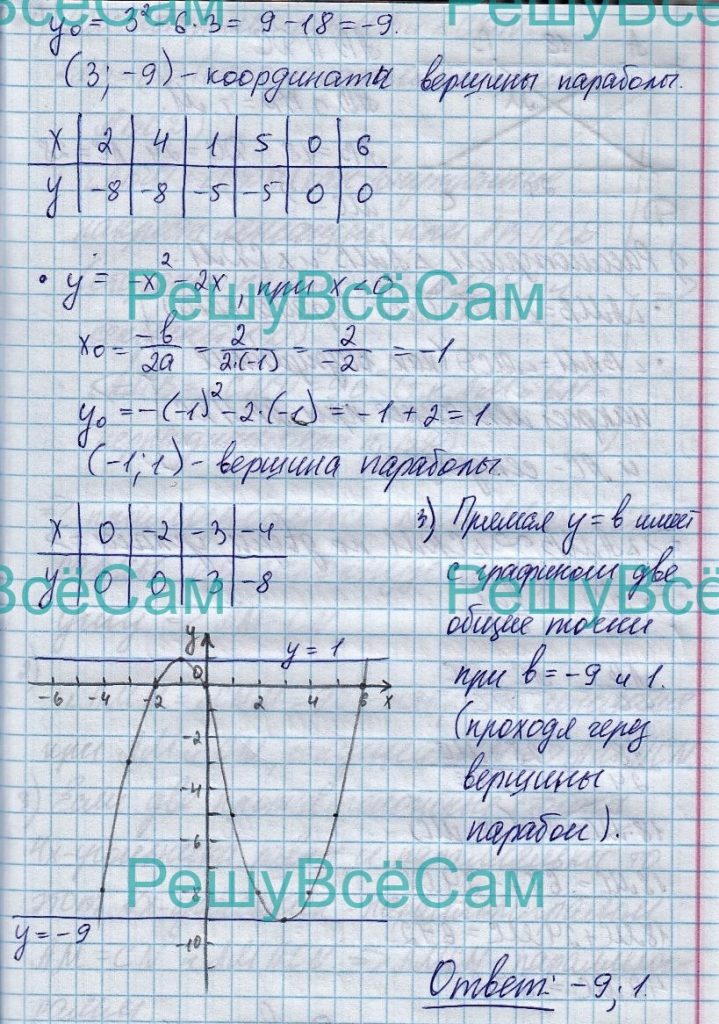 y₀ = 3² - 6·3 = 9 - 18 = -9.
(3; -9) - координаты вершины параболы.
x 2 4 1 5 0 6
y -8 -8 -5 -5 0 0
• y = -x² - 2x, при x < 0
x₀ = -b/2a = 2/2·(-1) = 2/-2 = -1
y₀ = -(-1)² - 2·(-1) = -1 + 2 = 1
(-1; 1) - вершина параболы.
x 0 -2 -3 -4
y 0 0 -3 -8
3) Прямая y = b имеет
с графиком две
общие точки
при b = -9 и 1.
(проходя через
вершины
парабол).
y
y = 1
0
-6 -4 -2 2 4 6 x
-2
-4
-6
-8
-10
y = -9
Ответ: -9; 1.
РешуВсёСам
РешуВсёСам
РешуВсёСам
ВсёСам
РешуВсё
РешуВсёСам